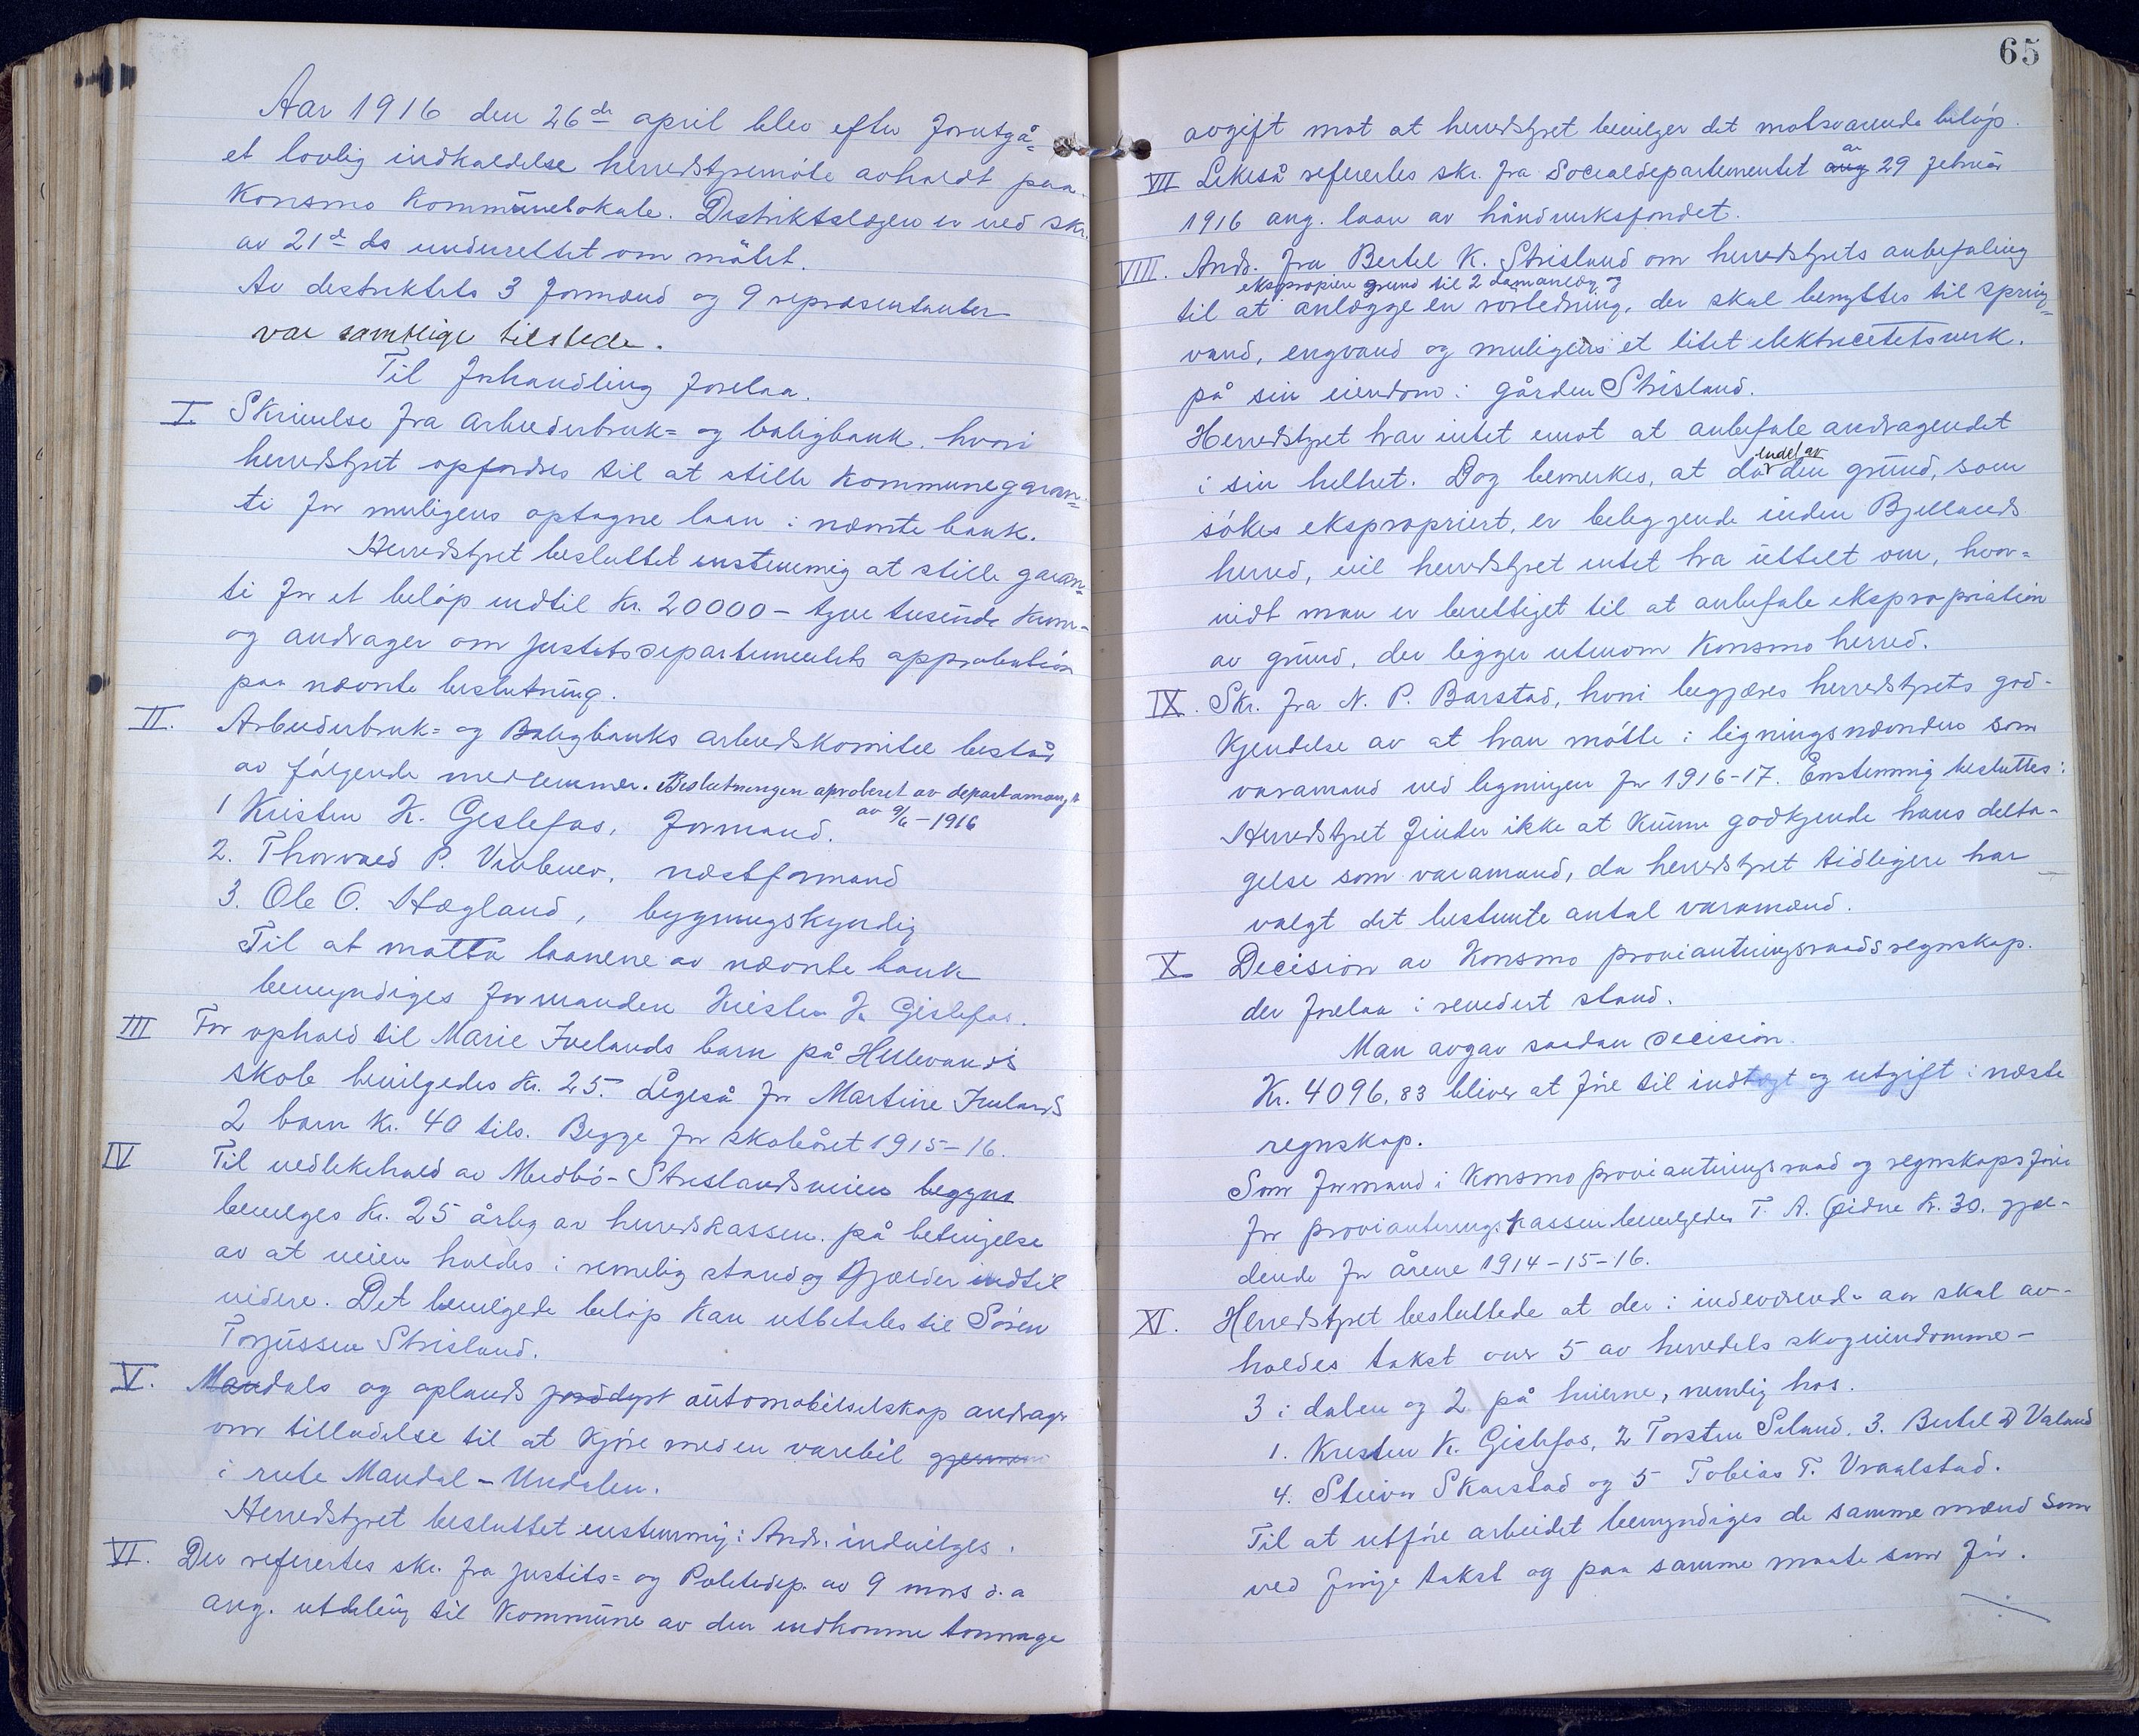 Aar 1916 den 26de april blev efter forutgå=
et lovlig indkaldelse herredstyremöte avholdt paa
Konsmo Kommunelokale. Distriktslægen er ved skr.
av 21de ds underrettet om mötet.
Av distriktets 3 formænd og 9 repræsentanter
var samtlige tilstede.
Til forhandling forelaa.
I. Skrivelse fra Arbeiderbruk= og boligbank, hvori
herredstyret opfordres til at stille Kommunegaran=
ti for muligens optagne laan i nævnte bank.
Herredstyret besluttet enstemmig at stille garan=
ti for et belöp indtil Kr. 20000 – tyve tusinde Kroner
og andrager om Justitsdepartementets approbation
paa nævnte beslutning.
II. Arbeiderbruk= og Boligbanks arbeidskomite bestaar
av fölgende medlemmer. Beslutningen aproberet av departamanget
av 9/6 – 1916
1 Kristen K. Gislefos, formand.
2. Thorvald P. Viubeuv, næstformand
3. Ole O. Hægland, bygningskyndig
Til at motta laanene av nævnte bank
bemyndiges formanden Kristen K. Gislefos.
III For ophold til Marie Ivelands barn på Hullevands
skole bevilgedes Kr. 25.– Ligeså for Martine Ivelands
2 barn Kr. 40 tils. Begge for skoleåret 1915–16.
IV Til vedlikehold av Medbö–Strislandsveien begges
bevilges Kr. 25 årlig av herredskassen på betingelse
av at veien holdes i rimelig stand og gjælder indtil
videre. Det bevilgede belöp kan utbetales til Sören
Torjussen Strisland.
V. Mandals og oplands automobilselskap andrager
om tilladelse til at kjöre med en varebil gjennem
i rute Mandal – Undalen.
Herredstyret besluttet enstemmig: Andr. indvilges.
VI. Der refertes skr. fra Justits= og Politidep. av 9 mars d.a
ang. utdeling til Kommune av den indkomne tonnage
65
avgift mot at herredstyret bevilger det motsvarende belöp.
VII Likeså refertes skr. fra Socialdepartementet ang av 29 februar
1916 ang. laan av håndverksfondet.
VIII. Andr. fra Bertel K. Strisland om herredstyrets anbefaling
ekspropiere grund til 2 damanlæg og
til at anlægge en rörledning, der skal benyttes til spring=
vand, engvand og muligens et litet elektricitetsverk.
på sin eiendom i gården Strisland.
Herredstyret har intet emot at anbefale andragendet
endel av
i sin helhet. Dog bemerkes, at da den grund, som
sökes ekspropriert, er beliggende inden Bjellands
herred, vil herredstyret intet ha uttalt om, hvor=
vidt man er berettiget til at anbefale ekspropriation
av grund, der ligger utenom Konsmo herred.
IX. Skr. fra N. P. Barstad, hvori begjæres herredstyrets god-
kjendelse av at han mötte i ligningsnævnden som
varamand ved ligningen for 1916–17. Enstemmig besluttes:
Herredstyret finder ikke at kunne godkjende hans delta-
gelse som varamand, da herredstyret tidligere har
valgt det bestemte antal varamænd.
X Decision av Konsmo provianteringsraads regnskap.
der forelaa i revidert stand.
Man avgav saadan decision.
Kr. 4096,83 bliver at före til indtægt og utgift i næste
regnskap.
Som formand i Konsmo provianteringsraad og regnskapsförer
for provianteringskassen bevilgedes T. A. Öidne Kr. 30. gjæl-
dende for årene 1914–15–16.
XI. Herredstyret besluttede at der i indeværende aar skal av-
holdes takst over 5 av herredets skogeiendomme –
3 i dalen og 2 på heierne, nemlig hos.
1. Kristen K. Gislefos, 2 Torsten Seland, 3. Bertel D Valand
4. Steivar Skarstad og 5 Tobias T. Vraalstad.
Til at utföre arbeidet bemyndiges de samme mænd som
ved forrige takst og paa samme maate som för.